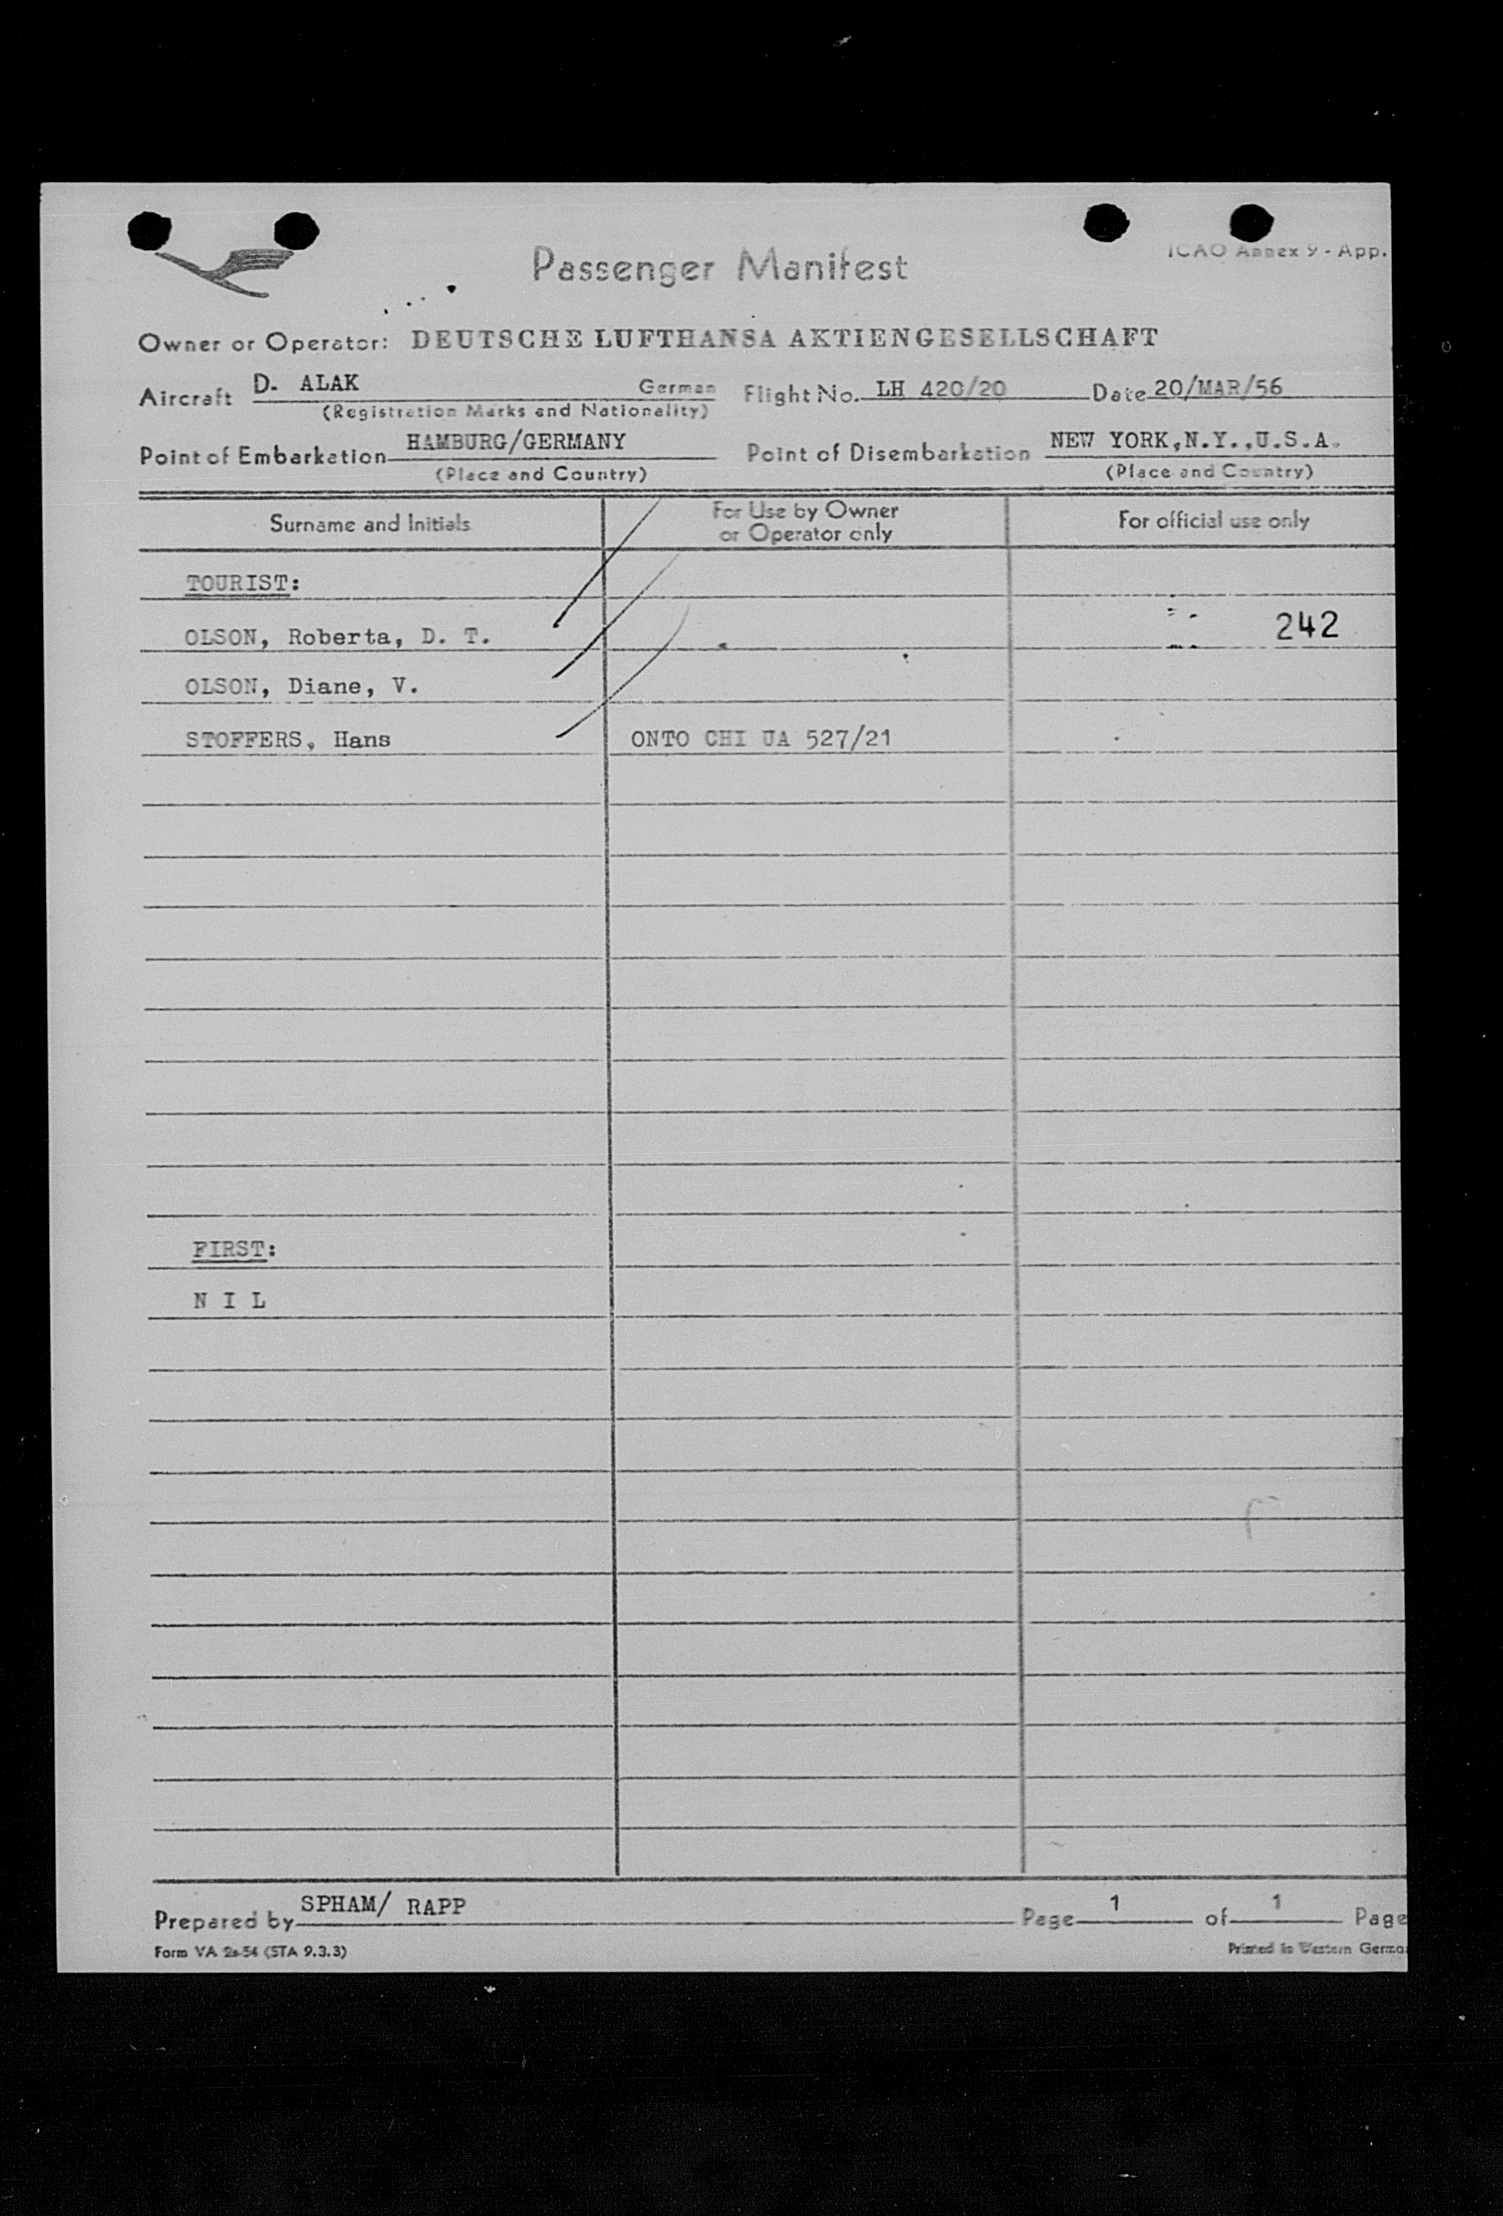 Passenger Manifest
ICAO Annex 9 - App.
Owner or Operator: DEUTSCHE LUFTHANSA AKTIENGESELLSCHAFT
Aircraft D. ALAK German Flight No. LH 420/20 Date 20/MAR/56
(Registration Marks and Nationality)
Point of Embarkation HAMBURG/GERMANY Point of Disembarkation NEW YORK,N.Y.,U.S.A.
(Place and Country) (Place and Country)
Surname and Initials For Use by Owner or Operator only For official use only
TOURIST:
OLSON, Roberta, D. T. 242
OLSON, Diane, V.
STOFFERS, Hans ONTO CHI UA 527/21
FIRST:
N I L
Prepared by SPHAM/ RAPP Page 1 of 1 Page
Form VA 2a-54 (STA 9.3.3) Printed in Western Germa